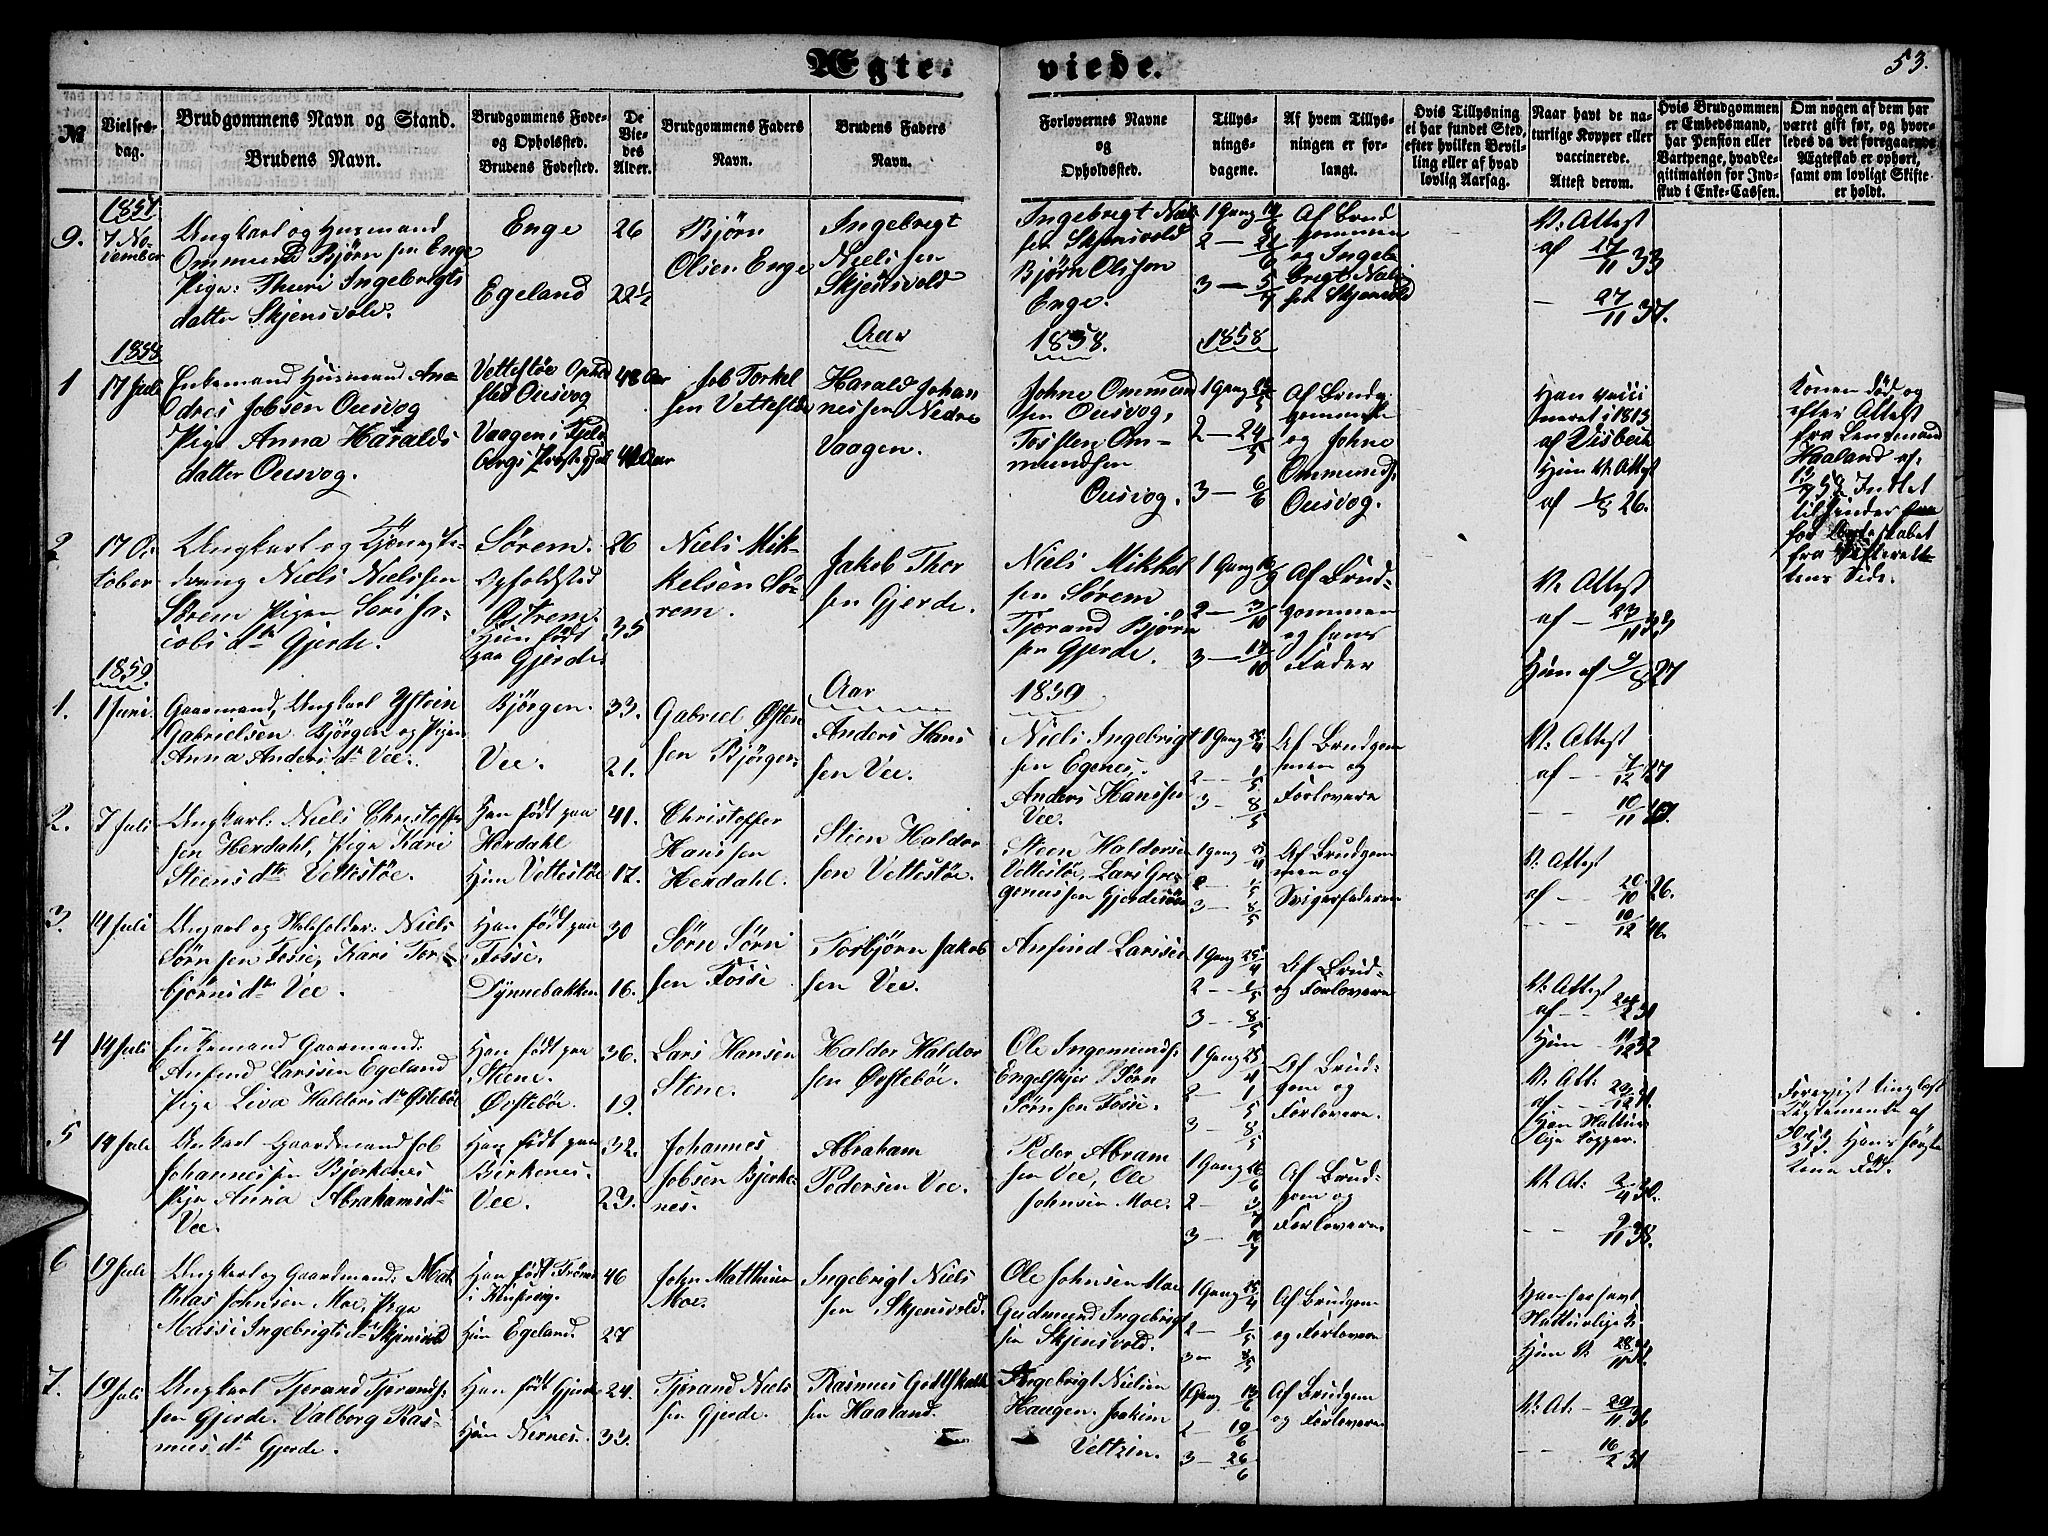 Ægte-
viede.
53.
№
Vielses-
dag.
Brudgommens Navn og Stand.
Brudens Navn.
Brudgommens Føde-
og Opholdssted.
Brudens Fødested.
De
Vie-
des
Alder.
Brudgommens Faders
Navn.
Brudens Faders
Navn.
Forlovernes Navne
og
Opholdssted.
Tillys-
nings-
dagene.
Af hvem Tillys-
ningen er for-
langt.
Hvis Tillysning
ei har fundet Sted,
efter hvilken Bevil-
ling eller af hvad
lovlig Aarsag.
Naar havt de na-
turlige Kopper eller
vaccinerede.
Attest derom.
Hvis Brudgommen
er Embedsmand,
har Pension eller
Vartpenge, hvad Le-
gitimation for Ind-
skud i Enke-Cassen.
Om nogen af dem har
været gift før, og hvor-
ledes da det foregaaende
Ægteskab er ophørt,
samt om lovligt Skifte
er holdt.
1857
9.
7 No-
vember
Ungkarl og Husmand
Ommund Bjørnsen Enge
Pige: Thuri Ingebrigts
datter Skjensvold.
Enge
Egeland
26
22½
Bjørn
Olsen Enge
Ingebrigt
Nielssen
Skjensvold
Ingebrigt Niels
sen Skjensvold
Bjørn Olssen
Enge.
1 Gang
2 —
3 — 5/7
Af Brud
gommen
og Ingeb
brigt Niels
sen Skjensvold
V: Attest
af 27/11 33
— 27/11 37.
Aar
1858.
1858
1858
1
17 Juli
Enkemand Husmand An-
dres Jobsen Ousvog
Pige Anna Haralds
datter Ousvog.
Vettestøe Ophold
sted Ousvog
Vaagen i Fjeld
bergs Præstegjeld
48 Aar
42 Aar
Job Torkel
sen Vettestøe
Harald Johan
nessen Nedre
Vaagen.
Johne Ommund
sen Ousvog,
Tosten Om-
mundsen
Ousvog.
1 Gang
2 — 24/5
3 — 6/6
Af Brudg
gommen
og Johne
Ommunds.
Ousvog.
Han vacci
neret i 1813
af Visbech
Hun V. Attest
af 1/8 26.
Konen død og
efter Attest
fra Lensmand
Haaland af
Intet
til hinder
for Ægteskabet
fra Skifteret-
tens Side.
2
17 Oc
tober
Ungkarl og Tjeneste-
dreng Niels Nielssen
Sørem Pigen Sari Ja-
cobs dtr Gjerde.
Sørem.
Opholdsted
Østrem.
Hun født
paa Gjerde.
26
35
Niels Mik-
kelsen Sø-
rem.
Jakob Thor
sen Gjerde.
Niels Mikkel
sen Sørem
Tjerand Bjørn
sen Gjerde.
1 Gang
2 — 3/10
3 — 17/10
Af Brud-
gommen
og hans
Fader
V: Attest
af — 23/11 33
Hun af 9/8 27
1859.
Aar
1859
1.
1 Juni.
Gaarmand, Ungkarl Ystein
Gabrielsen Bjørgen og Pigen
Anna Anders dtr Vee.
Bjørgen.
Vee.
33.
21.
Gabriel Østen
sen Bjørgen
Anders Hans
sen Vee.
Niels Ingebrigt
sen Egenes.
Anders Hanssen
Vee.
1 Gang 25/4
2 — 1/5
3 — 8/5
Af Brudgom
men og
Forlovere
V: Attest
af — 7/12 27
— 10/11
2.
7 Juli
Ungkarl: Niels Christoffer
sen Herdahl, Pige Kari
Steens dtr Vettestøe.
Han født paa
Herdahl
Hun Vettestøe
41.
17.
Christoffer
Hanssen
Herdahl.
Steen Haldor
sen Vettestøe.
Steen Haldorsen
Vettestøe, Lars Gre-
goriussen Gjerdesøe
1 Gang 25/4
2 — 1/5
3 — 8/5
Af Brudgom
men og
Svigerfaderen
V: Attest
af — 20/10 26.
— 10/12 46.
3.
14 Juli
Ungkarl og Selvfolder: Niels
Sørnsen Fosse, Kari Tor-
bjørns dtr Vee.
Han født paa
Fosse.
Tynnebakken
30
16.
Sørn Sørn
sen Fosse
Torbjørn Jakob
sen Vee.
Anfind Larssen
1 Gang 25/4
2 — 1/5
3 — 8/5
Af Brud-
og Forlovere
V: Attest
af
Hun
4
14 Juli
Enkemand Gaarmand:
Anfind Larssen Egeland
Pige Liva Haldors dtr Østebøe
Han født paa
Steene.
Ørstebøe.
36.
19.
Lars Hansen
Stene.
Haldor Haldor
sen Ørstebøe.
Ole Ingemunds.
Engelskjer Sørn
Sørnsen Fosse.
1 Gang 25/4
2 — 1/5
3 — 8/5
Af Brud-
gom og
Forlovere.
V: Att:
af
Han Nattur
lige Kopper.
Forevist tinglæst
Testemente af
Hans første
Kone død.
5
14 Juli
Unkarl Gaardmand Job
Johannessen Bjørkenes
Pige Anna Abrahamsdtr
Vee.
Han født paa
Birkenes.
Vee.
32.
23.
Johannes
Jobsen Bjerke-
nes.
Abraham
Pedersen Vee.
Peder Abram
sen Vee, Ole
Johnsen Moe.
1 Gang 26/6
2 — 3/7
3 — 10/7
Af Brud-
gom og
Forlovere.
V. At: 2/4 30.
— 9/11 38.
6
19 Juli
Ungkarl og Gaardmand: Mat
thias Johnsen Moe. Pige
Massi Ingebrigts dtr Skjensvold
Han født
Hun Egeland.
46
27
John Matthisen
Moe.
Ingebrigt Niels
sen Skjensvold.
Ole Johnsen Moe
Gudmund Ingebrigt
sen Skjensvold.
1 Gang 25/4
2 — 1/5
3 — 8/5
Af Brudgom
og Forlovere
Han har havt
Natturlige K.
Hun V.
7.
19 Juli
Ungkarl Tjerand Tjerands-
sen Gjerde. Valborg Ras-
mus dtr Gjerde.
Han født Gjerde
Hun Nernes.
24.
33.
Tjerand Niels
sen Gjerde.
Rasmus Gottskalk
sen Haaland.
Ingebrigt Nielsen
Haugen. Joakim
Veltzin.
1 Gang 13/6
2 — 19/6
3 — 26/6
Af Brudgom
og Forlovere
V: At: — 29/11 36
— 16/2 31